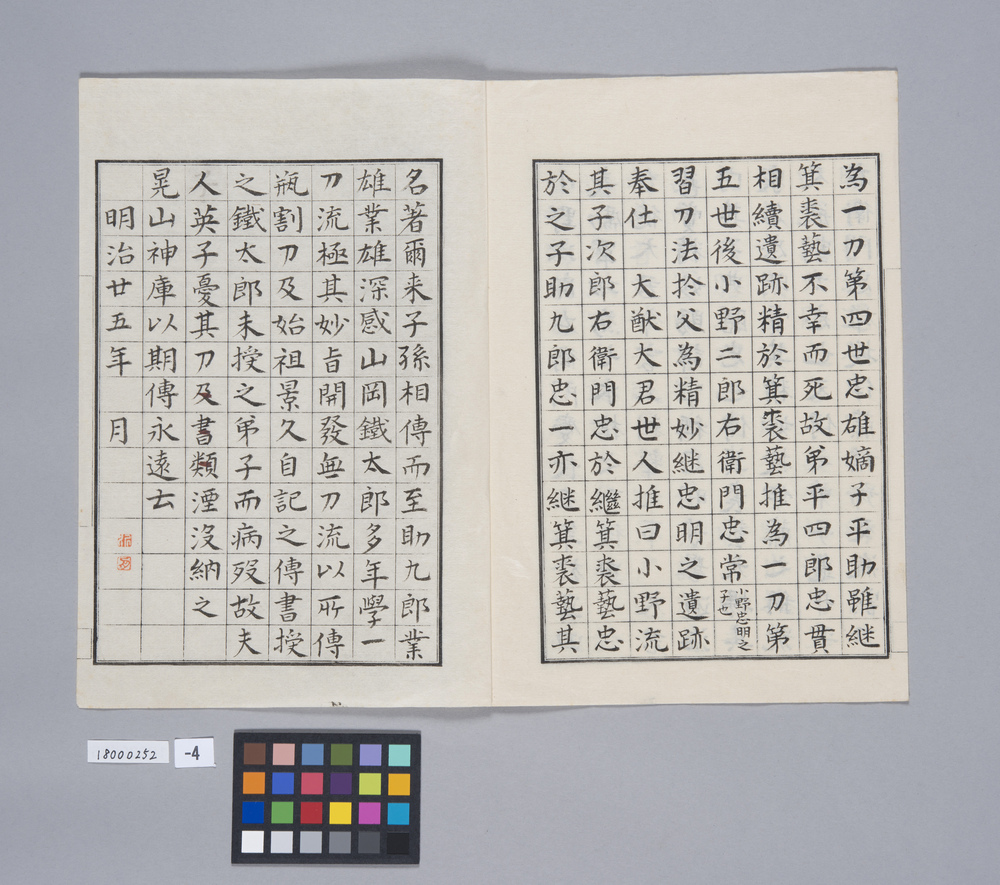 為一刀第四世忠雄嫡子平助雖継
箕裘藝不幸而死故弟平四郎忠貫
相續遺跡精於箕裘藝推為一刀第
五世後小野二郎右衛門忠常小野忠明之子也
習刀法於父為精妙継忠明之遺跡
奉仕 大猷大君世人推曰小野流
其子次郎右衛門忠於繼箕裘藝忠
於之子助九郎忠一亦継箕裘藝其
名著爾来子孫相傳而至助九郎業
雄業雄深感山岡鐵太郎多年學一
刀流極其妙旨開發無刀流以所傳
瓶割刀及始祖景久自記之傳書授
之鐵太郎未授之弟子而病歿故夫
人英子憂其刀及書類湮沒納之
晃山神庫以期傳永遠云
明治廿五年 月
18000252
-4